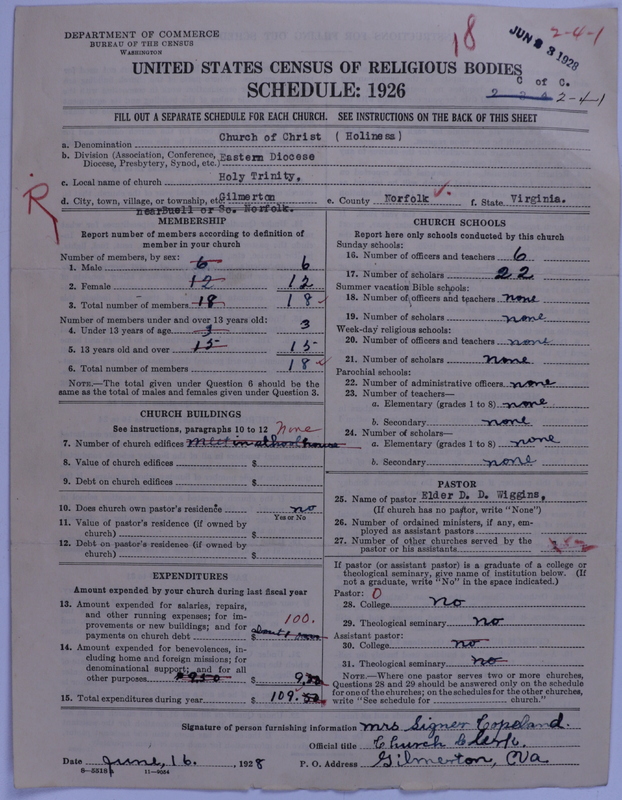 DEPARTMENT OF COMMERCE
BUREAU OF THE CENSUS
WASHINGTON
18
JUN 3 1928
2-4-1
UNITED STATES CENSUS OF RELIGIOUS BODIES
SCHEDULE: 1926
C of C.
2-4-1
FILL OUT A SEPARATE SCHEDULE FOR EACH CHURCH. SEE INSTRUCTIONS ON THE BACK OF THIS SHEET
a. Denomination Church of Christ ( Holiness)
b. Division (Association, Conference, Diocese, Presbytery, Synod, etc.) Eastern Diocese
c. Local name of church Holy Trinity.
d. City, town, village, or township, etc. Gilmerton e. County Norfolk f. State Virginia.
near Buell or So. Norfolk.
R
MEMBERSHIP
Report number of members according to definition of
member in your church
Number of members, by sex:
1. Male 6 6
2. Female 12 12
3. Total number of members 18 18
Number of members under and over 13 years old:
4. Under 13 years of age 3
5. 13 years old and over 15 15
6. Total number of members 18
NOTE.—The total given under Question 6 should be the
same as the total of males and females given under Question 3.
CHURCH BUILDINGS
See instructions, paragraphs 10 to 12 None
7. Number of church edifices meet in school house
8. Value of church edifices $
9. Debt on church edifices $
10. Does church own pastor's residence no
Yes or No
11. Value of pastor's residence (if owned by
church) $
12. Debt on pastor's residence (if owned by
church) $
EXPENDITURES
Amount expended by your church during last fiscal year
13. Amount expended for salaries, repairs,
and other running expenses; for im-
provements or new buildings; and for 100.
payments on church debt $ about
14. Amount expended for benevolences, in-
cluding home and foreign missions; for
denominational support; and for all
other purposes $9.50 $ 9.
15. Total expenditures during year $ 109.
CHURCH SCHOOLS
Report here only schools conducted by this church
Sunday schools:
16. Number of officers and teachers 6
17. Number of scholars 22
Summer vacation Bible schools:
18. Number of officers and teachers none
19. Number of scholars none
Week-day religious schools:
20. Number of officers and teachers none
21. Number of scholars none
Parochial schools:
22. Number of administrative officers none
23. Number of teachers—
a. Elementary (grades 1 to 8) none
b. Secondary none
24. Number of scholars—
a. Elementary (grades 1 to 8) none
b. Secondary none
PASTOR
25. Name of pastor Elder D. D. Wiggins,
(If church has no pastor, write "None")
26. Number of ordained ministers, if any, em-
ployed as assistant pastors
27. Number of other churches served by the
pastor or his assistants
If pastor (or assistant pastor) is a graduate of a college or
theological seminary, give name of institution below. (If
not a graduate, write "No" in the space indicated.)
Pastor: 0
28. College No
29. Theological seminary No
Assistant pastor:
30. College No
31. Theological seminary No
NOTE.—Where one pastor serves two or more churches,
Questions 28 and 29 should be answered only on the schedule
for one of the churches; on the schedules for the other churches,
write "See schedule for church."
Signature of person furnishing information Mrs Signer Copeland.
Official title Church Clerk.
Date June, 16. 1928 P. O. Address Gilmerton, Va
8-5518 11-9064